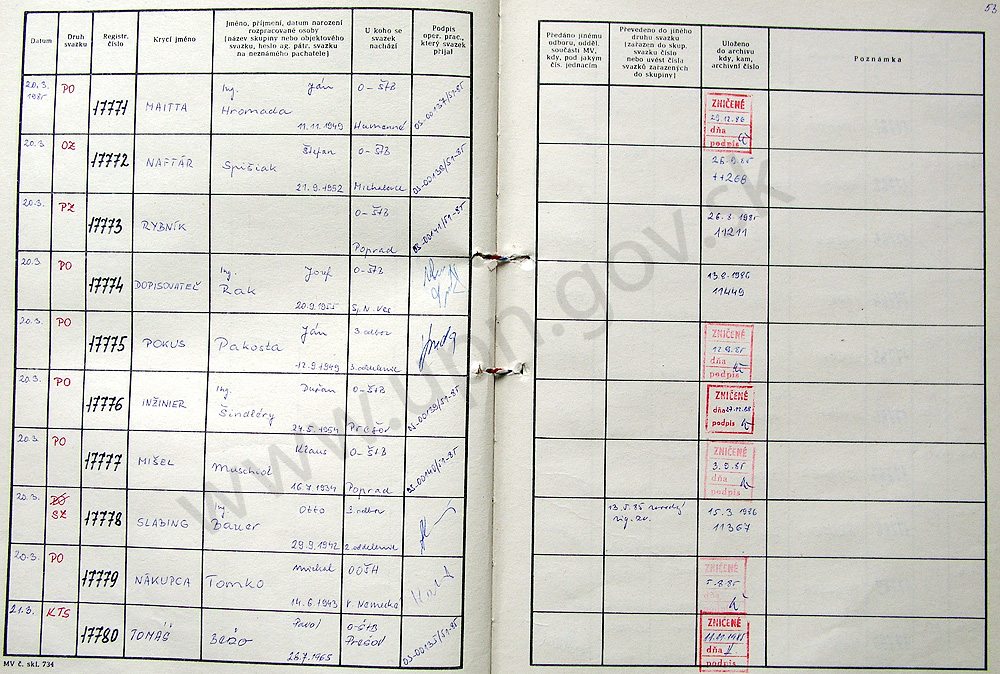 53
Datum
Druh
svazku
Registr.
číslo
Krycí jméno
Jméno, příjmení, datum narození
rozpracované osoby
(název skupiny nebo objektového
svazku, heslo ag. pátr. svazku
na neznámého pachatele)
U koho se
svazek
nachází
Podpis
oper. prac.,
který svazek
přijal
Předáno jinému
odboru, odděl.
součásti MV,
kdy, pod jakým
čís. jednacím
Převedeno do jiného
druhu svazku
(zařazen do skup.
svazku číslo
nebo uvést čísla
svazků zařazených
do skupiny)
Uloženo
do archivu
kdy, kam,
archivní číslo
Poznámka
20.3. 1985 PO 17771 MAITTA Ing. Ján O-ŠtB
Hromada
11.11.1949 Humenné OS-00137/51-85
ZNIČENÉ
29.12.86
dňa
podpis
20.3. OZ 17772 NAFTÁR Štefan O-ŠtB
Spišiak
21.9.1952 Michalovce OS-00138/51-85
26.9.85
11268
20.3. PZ 17773 RYBNÍK O-ŠtB
Poprad OS-00141/51-85
26.8.1985
11211
20.3. PO 17774 DOPISOVATEĽ Ing. Jozef O-ŠtB
Rak
20.9.1955 Sp.N.Ves
13.2.1986
11449
20.3. PO 17775 POKUS Ján 3.odbor
Pakosta
12.9.1949 3.oddelenie
ZNIČENÉ
12.9.85
dňa
podpis
20.3. PO 17776 INŽINIER Ing. Dušan O-ŠtB
Šindléry
24.5.1954 Prešov
ZNIČENÉ
dňa
podpis
20.3. PO 17777 MIŠEL Klaus O-ŠtB
Muschol
16.7.1934 Poprad OS-00140/51-85
ZNIČENÉ
3.9.85
dňa
podpis
20.3. SZ 17778 SLABING Ing. Otto 3.odbor
Bauer
29.9.1942 2.oddelenie
13.5.85
15.3.1986
11367
20.3. PO 17779 NÁKUPCA Michal OOŠH
Tomko
14.6.1943 V. Nemecké
ZNIČENÉ
5.8.85
dňa
21.3. KTS 17780 TOMÁŠ Pavol O-ŠtB
Bežo Prešov
28.7.1965 OS-00135/51-85
ZNIČENÉ
11.11.1985
dňa
podpis
MV č. skl. 734
www.upn.gov.sk